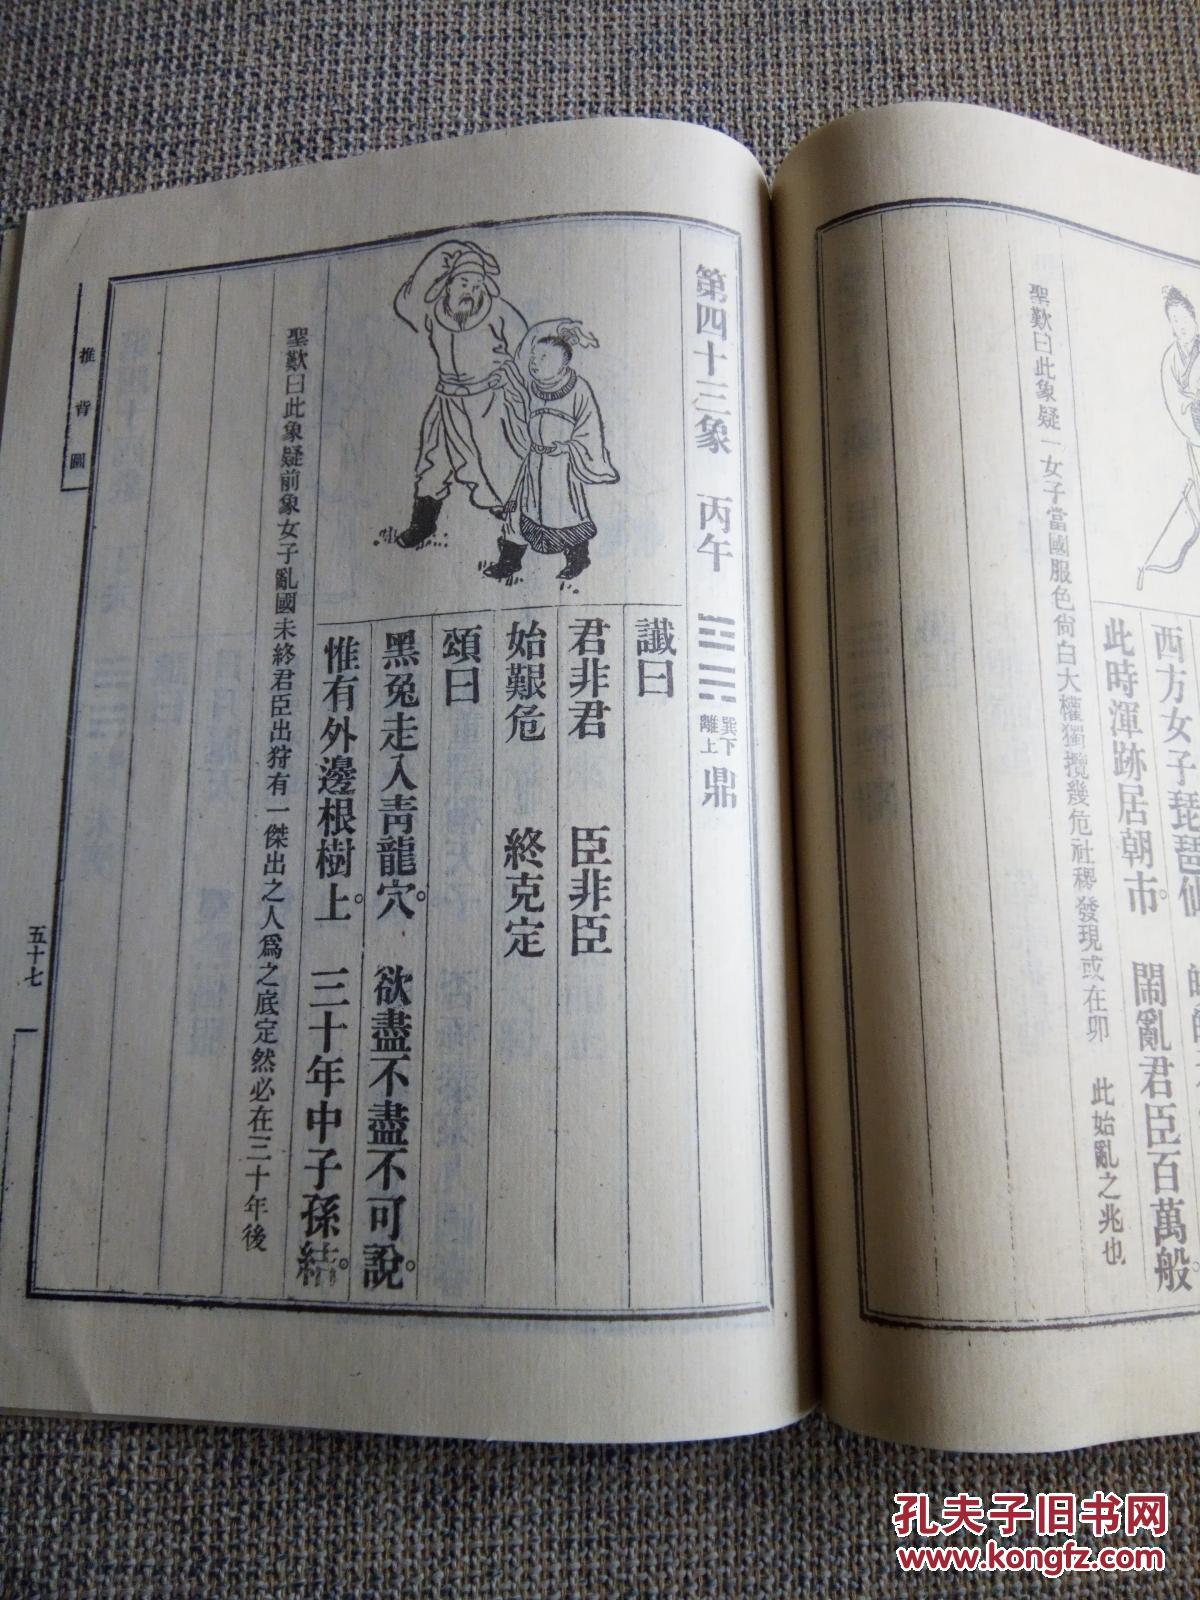 西方女子琵琶仙
此時渾跡居朝市。　鬧亂君臣百萬般。
聖歎曰此象疑一女子當國服色尙白大權獨攬幾危社稷發現或在卯　此始亂之兆也
第四十三象　丙午　巽下離上　鼎
讖曰
君非君　臣非臣
始艱危　終克定
頌曰
黑兔走入靑龍穴。　欲盡不盡不可說。
惟有外邊根樹上。　三十年中子孫結。
聖歎曰此象疑前象女子亂國未終君臣出狩有一傑出之人爲之底定然必在三十年後
推背圖
五十七
孔夫子旧书网
www.kongfz.com